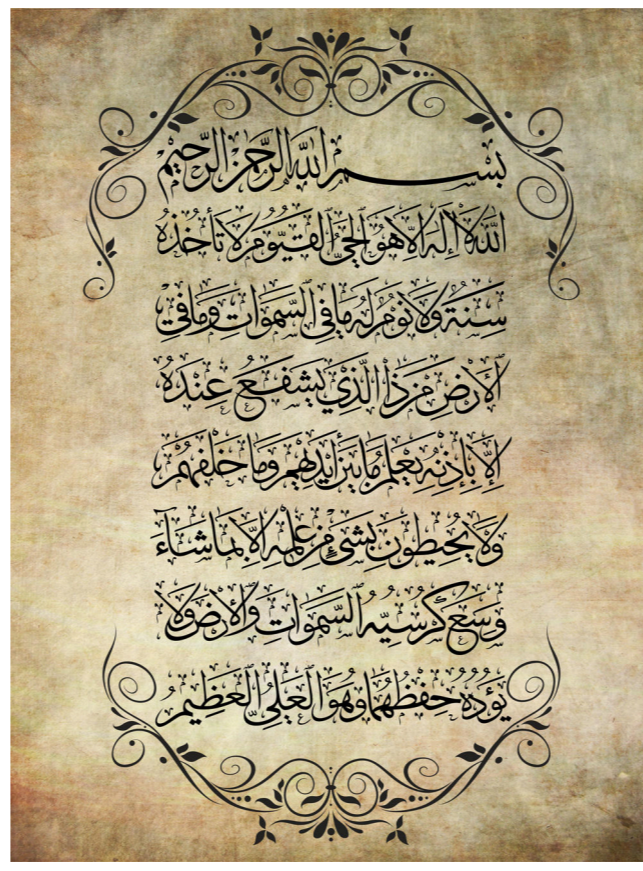 بِسْمِ اللهِ الرَّحْمٰنِ الرَّحِيْمِ
اَللهُ لَا إِلٰهَ اِلَّا هُوَ الْحَيُّ الْقَيُّوْمُ لَا تَأْخُذُهُ
سِنَةٌ وَلَا نَوْمٌ لَهُ مَا فِي السَّمٰوَاتِ وَمَا فِي
الْاَرْضِ مَنْ ذَا الَّذِيْ يَشْفَعُ عِنْدَهُ
اِلَّا بِاِذْنِهِ يَعْلَمُ مَا بَيْنَ أَيْدِيْهِمْ وَمَا خَلْفَهُمْ
وَلَا يُحِيْطُوْنَ بِشَيْءٍ مِنْ عِلْمِهِ اِلَّا بِمَا شَاءَ
وَسِعَ كُرْسِيُّهُ السَّمٰوَاتِ وَالْاَرْضَ وَلَا
يَؤُدُهُ حِفْظُهُمَا وَهُوَ الْعَلِيُّ الْعَظِيْمُ